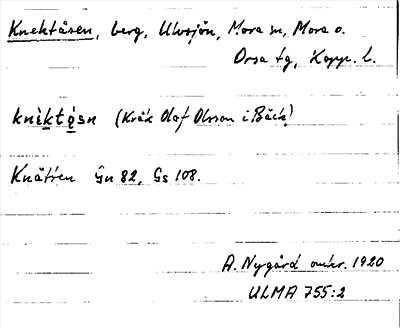 Knektåsen, berg, Ulvsjön, Mora sn, Mora o.
Orsa tg, Kopp. l.
knèktǫ̀sn (Kråk Olof Olsson i Bäck!)
Knätten Gn 82, Gs 108.
A. Nygård omkr. 1920
ULMA 755:2